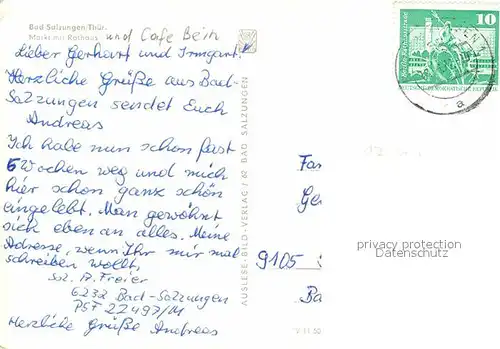 Bad Salzungen/Thür.
Markt mit Rathaus und Cafe Bein
Lieber Gerhart und Irmgart!
Herzliche Grüße aus Bad-
Salzungen sendet Euch
Andreas
Ich habe nun schon fast
5 Wochen weg und mich
hier schon ganz schön
eingelebt. Man gewöhnt
sich eben an alles. Meine
Adresse, wenn Ihr mir mal
schreiben wollt,
Sol. A. Freier
6232 Bad-Salzungen
PSF 22497/M
Herzliche Grüße Andreas
AUSLESE-BILD-VERLAG / 62 BAD SALZUNGEN
10
DEUTSCHE DEMOKRATISCHE REPUBLIK
a
Fa
Ge
9105
Ba
privacy protection
Datenschutz
V 11 50